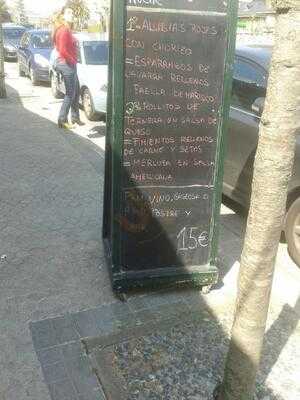 1º= ALUBIAS ROJAS
CON CHORIZO
= ESPARRAGOS DE
NAVARRA RELLENOS
PAELLA DE MARISCO
2º ROLLITOS DE
TERNERA EN SALSA DE
QUESO
= PIMIENTOS RELLENOS
DE CARNE Y SETAS
= MERLUZA EN SALSA
AMERICANA
PAN, VINO, GASEOSA O
AGUA POSTRE Y
15€